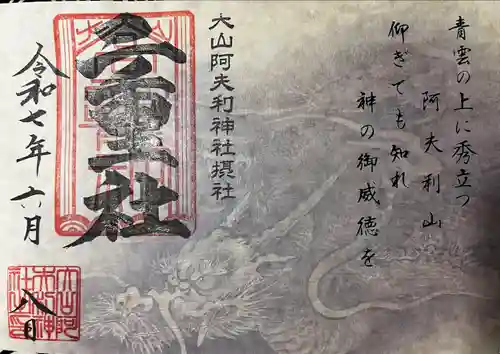 青雲の上に秀立つ
阿夫利山
仰ぎても知れ
神の御威徳を
大山阿夫利神社摂社
社
令和七年六月
八日
大山阿
夫利神